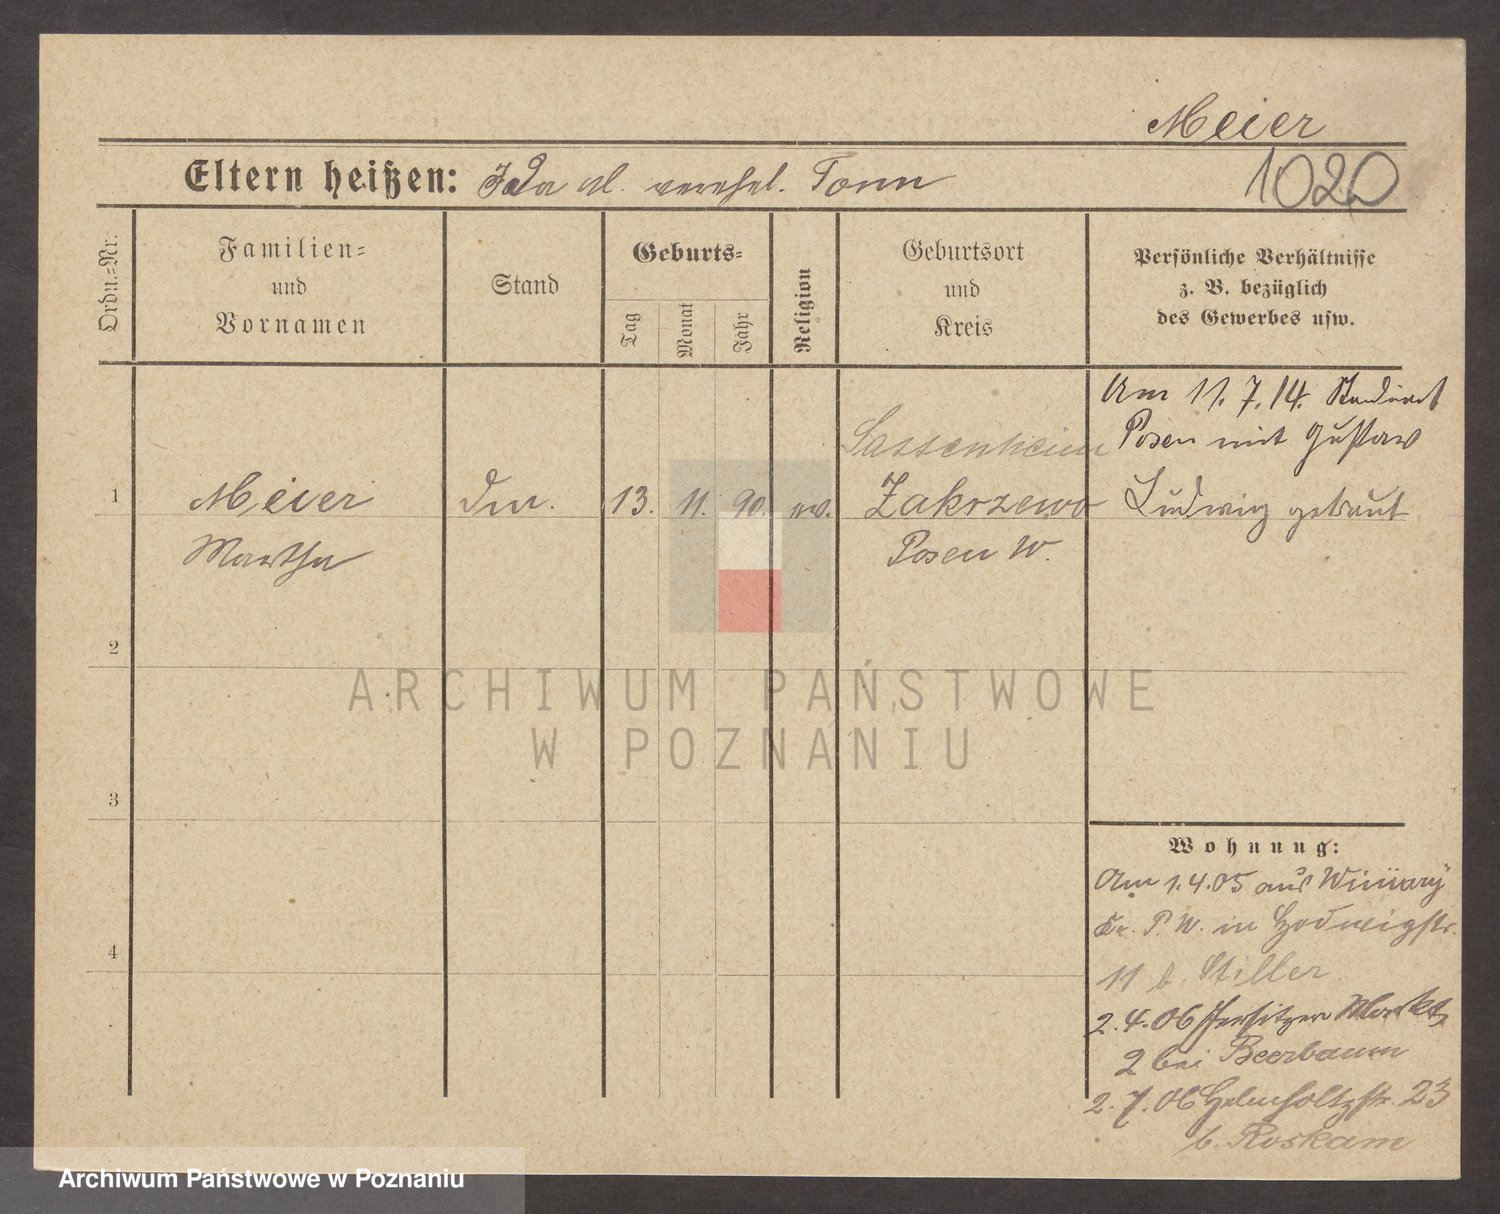 Meier
Eltern heißen: Ida M. verehel. Tonn
1020
Ordn.-Nr.
Familien-
und
Vornamen
Stand
Geburts-
Tag
Monat
Jahr
Religion
Geburtsort
und
Kreis
Persönliche Verhältnisse
z. B. bezüglich
des Gewerbes usw.
1
Meier
Martha
13. 11. 90. ev.
Sassenheim
Zakrzewo
Posen W.
Am 11. 7. 14. Standesamt
Posen mit Gustav
Ludwig getraut
2
3
4
Wohnung:
Am 1.4.05 aus Winiary
Kr. P. W. in Hedwigstr.
11 b. Stiller
2.4.06 Jersitzer Markt
2 bei Beerbaum
2.7.06 Helmholtzstr. 23
b. Roskam
ARCHIWUM PAŃSTWOWE
W POZNANIU
Archiwum Państwowe w Poznaniu